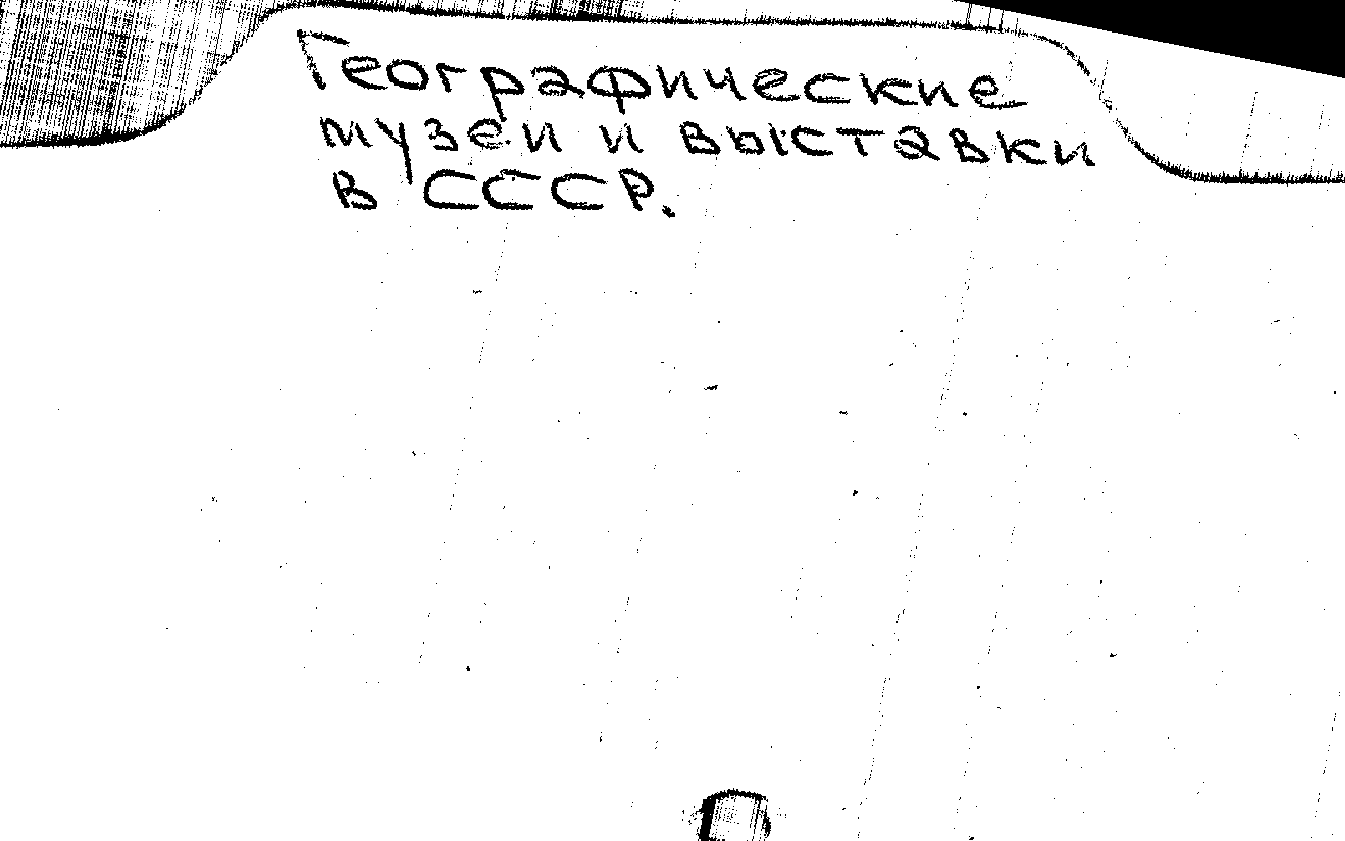 Географические
музеи и выставки
в СССР.